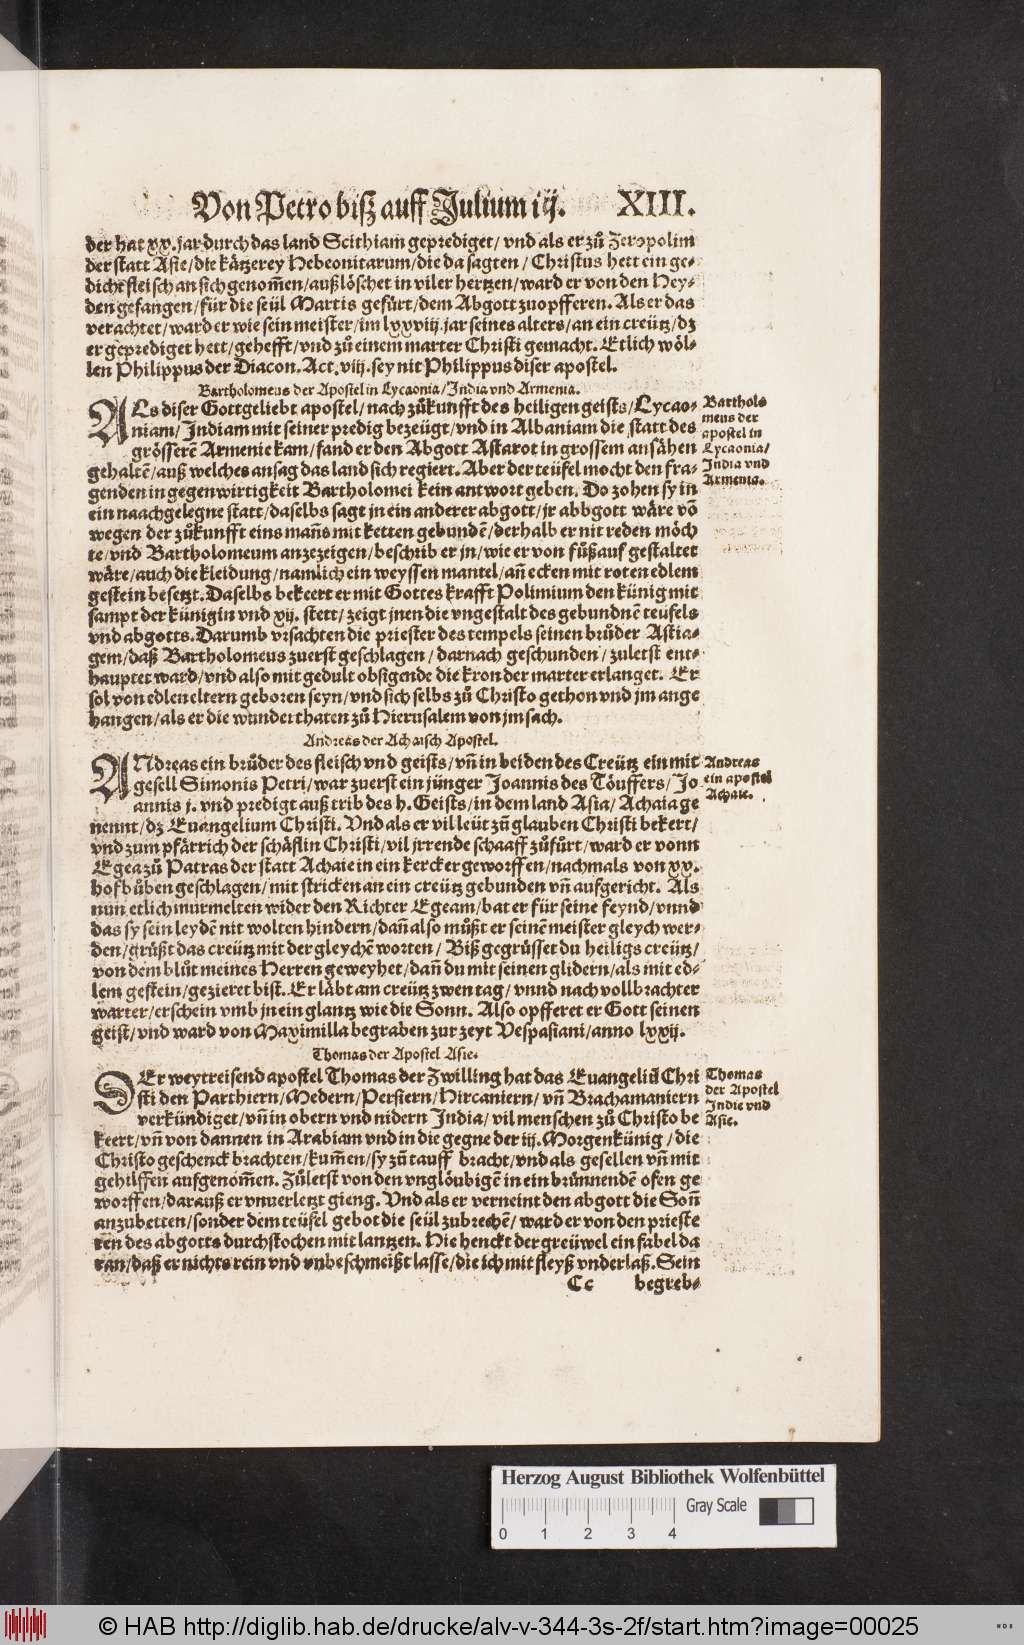 Von Petro biß auff Julium iij. XIII.
der hat xx. jar durch das land Scithiam geprediget/ vnd als er zů Jeropolim
der statt Asie/die kätzerey Hebeonitarum/die da sagten/ Christus hett ein ge-
dicht fleisch an sich genom̃en/außlöschet in viler hertzen/ward er von den Hey-
den gefangen/für die seül Martis gefürt/dem Abgott zuopfferen. Als er das
verachtet/ward er wie sein meister/im lxxviij. jar seines alters/an ein creütz/dz
er geprediget hett/gehefft/vnd zů einem marter Christi gemacht. Etlich wöl-
len Philippus der Diacon. Act. viij. sey nit Philippus diser apostel.
Bartholomeus der Apostel in Lycaonia/India vnd Armenia.
ALs diser Gottgeliebt apostel/nach zůkunfft des heiligen geists/Lycao-
niam/Indiam mit seiner predig bezeügt/vnd in Albaniam die statt des
grösserẽ Armenie kam/fand er den Abgott Astarot in grossem ansähen
gehaltẽ/auß welches ansag das land sich regiert. Aber der teüfel mocht den fra-
genden in gegenwirtigkeit Bartholomei kein antwort geben. Do zohen sy in
ein naachgelegne statt/daselbs sagt jn ein anderer abgott/jr abbgott wäre võ
wegen der zůkunfft eins mañs mit ketten gebundẽ/derhalb er nit reden möch
te/vnd Bartholomeum anzezeigen/beschrib er jn/wie er von fůß auf gestaltet
wäre/auch die kleidung/namlich ein weyssen mantel/añ ecken mit roten edlem
gestein besetzt. Daselbs bekeert er mit Gottes krafft Polimium den künig mit
sampt der künigin vnd xij. stett/zeigt jnen die vngestalt des gebundnẽ teüfels
vnd abgotts. Darumb vrsachten die priester des tempels seinen brůder Astia-
gem/daß Bartholomeus zuerst geschlagen/darnach geschunden/zuletst ent-
hauptet ward/vnd also mit gedult obsigende die kron der marter erlanget. Er
sol von edlen eltern geboren seyn/vnd sich selbs zů Christo gethon vnd jm ange
hangen/als er die wunderthaten zů Hierusalem von jm sach.
Bartholo-
meus der
apostel in
Lycaonia/
India vnd
Armenia.
Andreas der Achaisch Apostel.
ANdreas ein brůder des fleisch vnd geists/vñ in beiden des Creütz ein mit
gesell Simonis Petri/war zuerst ein jünger Joannis des Töuffers/Jo
annis j. vnd predigt auß trib des h. Geists/in dem land Asia/Achaia ge
nennt/dz Euangelium Christi. Vnd als er vil leüt zũ glauben Christi bekert/
vnd zum pfärrich der schäflin Christi/vil jrrende schaaff zůfůrt/ward er vonn
Egea zů Patras der statt Achaie in ein kercker geworffen/nachmals von xx.
hofbůben geschlagen/mit stricken an ein creütz gebunden vñ aufgericht. Als
nun etlich murmelten wider den Richter Egeam/bat er für seine feynd/vnnd
das sy sein leydẽ nit wolten hindern/dañ also můßt er seinẽ meister gleych wer-
den/grüßt das creütz mit der gleychẽ worten/ Biß gegrüsset du heiligs creütz/
von dem blůt meines Herren geweyhet/dañ du mit seinen glidern/als mit ed-
lem gestein/gezieret bist. Er läbt am creütz zwen tag/vnnd nach vollbrachter
marter/erschein vmb jn ein glantz wie die Sonn. Also opfferet er Gott seinen
geist/vnd ward von Maximilla begraben zur zeyt Vespasiani/anno lxxij.
Andreas
ein apostel
Achaie.
Thomas der Apostel Asie.
DEr weytreisend apostel Thomas der Zwilling hat das Euangeliũ Chri
sti den Parthiern/Medern/Persiern/Hircaniern/vñ Brachamaniern
verkündiget/vñ in obern vnd nidern India/vil menschen zů Christo be
keert/vñ von dannen in Arabiam vnd in die gegne der iij. Morgenkünig/die
Christo geschenck brachten/kum̃en/sy zũ tauff bracht/vnd als gesellen vñ mit
gehilffen aufgenom̃en. Zůletst von den vnglöubigẽ in ein brünnendẽ ofen ge
worffen/darauß er vnuerletzt gieng. Vnd als er verneint den abgott die Soñ
anzubetten/sonder dem teüfel gebot die seül zubrechẽ/ward er von den prieste
ren des abgotts durchstochen mit lantzen. Hie henckt der greüwel ein fabel da
ran/daß er nichts rein vnd vnbeschmeißt lasse/die ich mit fleyß vnderlaß. Sein
Thomas
der Apostel
Indie vnd
Asie.
Cc begreb-
Herzog August Bibliothek Wolfenbüttel
Gray Scale
0 1 2 3 4
© HAB http://diglib.hab.de/drucke/alv-v-344-3s-2f/start.htm?image=00025